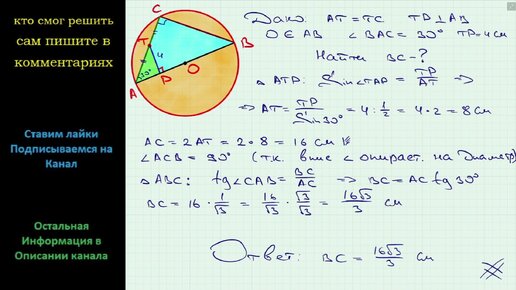 кто смог решить
сам пишите в
комментариях
Ставим лайки
Подписываемся на
Канал
Остальная
Информация в
Описании канала
C
T
4
30°
A
P
O
B
Дано: AT = TC TP ⊥ AB
O ∈ AB ∠BAC = 30° TP = 4 см
Найти BC - ?
△ ATP: Sin∠TAP = TP/AT ⇒
⇒ AT = TP/Sin30° = 4 : 1/2 = 4 · 2 = 8 см
AC = 2AT = 2 · 8 = 16 см
∠ACB = 90° (т.к. впис ∠ опирает. на диаметр)
△ ABC: tg∠CAB = BC/AC ⇒ BC = AC tg30°
BC = 16 · 1/√3 = 16/√3 · √3/√3 = 16√3/3 см
Ответ: BC = 16√3/3 см